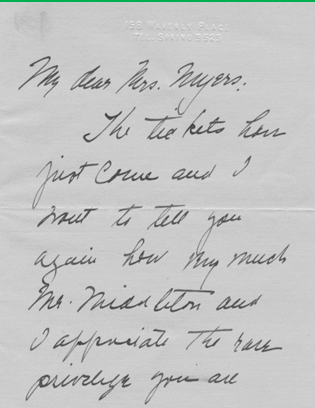 158 WAVERLY PLACE
TEL. SPRING 3523
My dear Mrs. Myers:
The tickets have
just come and I
want to tell you
again how very much
Mr. Middleton and
I appreciate the rare
privilege you are